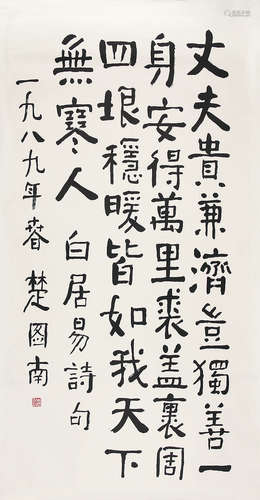 丈夫貴兼濟豈獨善一
身安得萬里裘盖裏周
四垠穩暖皆如我天下
無寒人 白居易詩句
一九八九年春 楚圖南